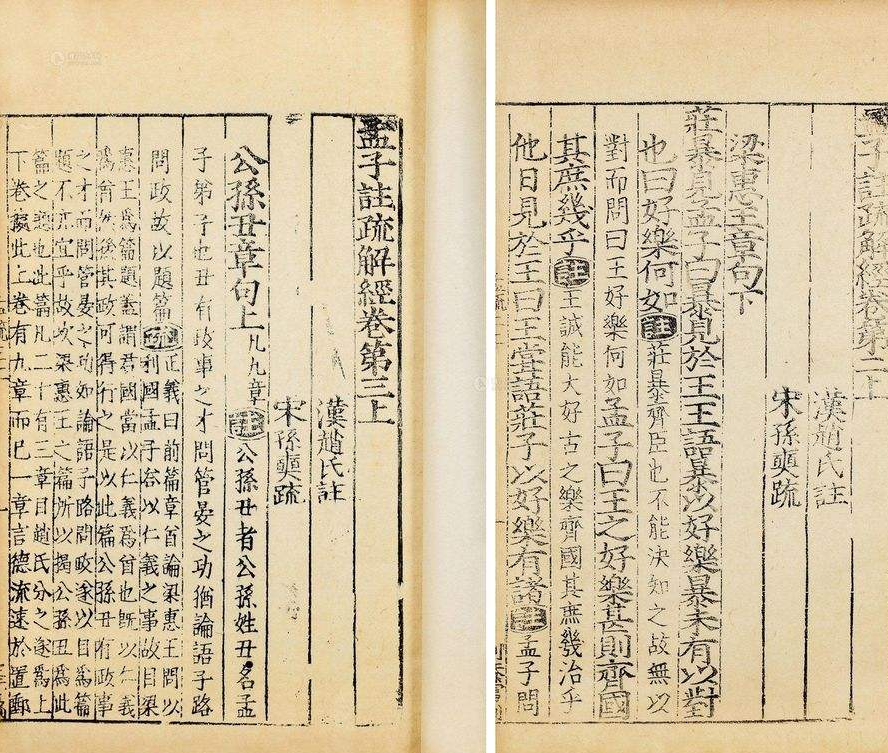 孟子註疏解經卷第二上
漢趙氏註
宋孫奭疏
梁惠王章句下
莊暴見孟子曰暴見於王王語暴以好樂暴未有以對
也曰好樂何如註莊暴齊臣也不能決知之故無以
對而問曰王好樂何如孟子曰王之好樂甚則齊國
其庶幾乎註王誠能大好古之樂齊國其庶幾治乎
他日見於王曰王嘗語莊子以好樂有諸註孟子問
孟子註疏解經卷第三上
漢趙氏註
宋孫奭疏
公孫丑章句上凡九章註公孫丑者公孫姓丑名孟
子弟子也丑有政事之才問管晏之功猶論語子路
問政故以題篇疏正義曰前篇章首論梁惠王問以
利國孟子答以仁義之事故目梁
惠王爲篇題蓋謂君國當以仁義爲首也既以仁義
爲首然後其政可得行之是以此篇公孫丑有政事
之才而問管晏之功如論語子路問政遂以目爲篇
題不亦宜乎故次梁惠王之篇所以揭公孫丑爲此
篇之題也此篇凡二十有三章目趙氏分之遂爲上
下卷據此上卷有九章而已一章言德流速於置郵